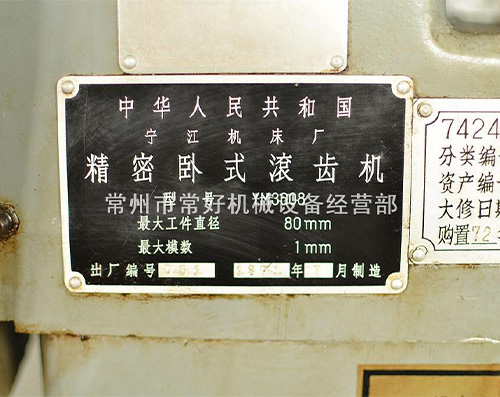 中华人民共和国
宁江机床厂
精密卧式滚齿机
型号 YM3608
常州市常好机械设备经营部
最大工件直径 80mm
最大模数 1mm
出厂编号 年 月制造
7424
分类编
资产编
大修日期
购置72.